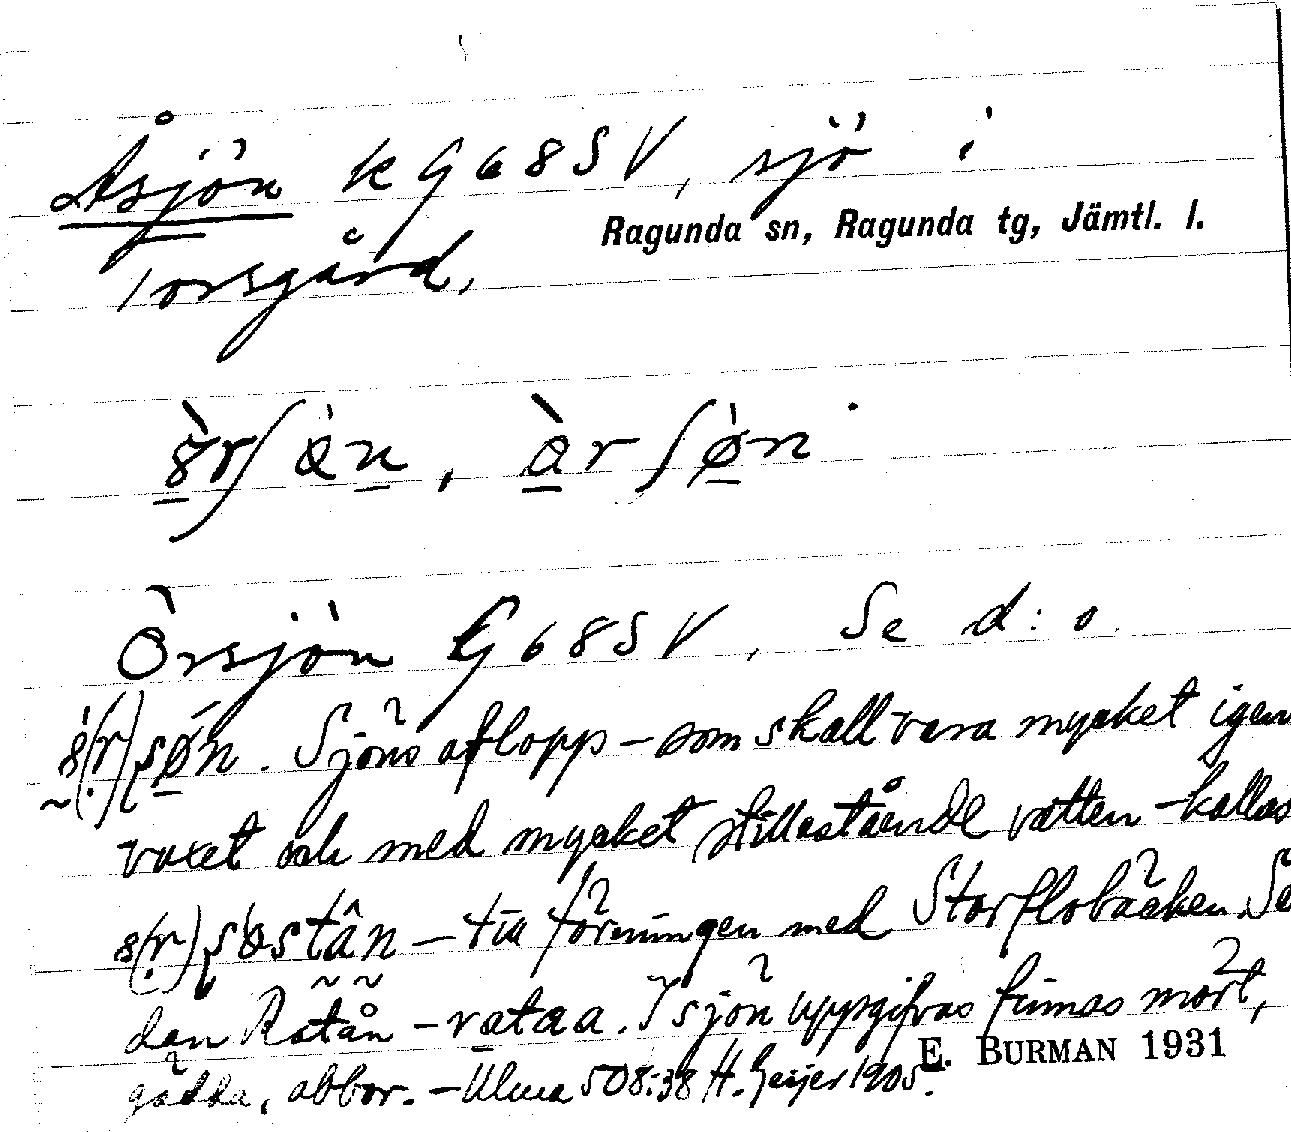 Åsjön k G 68 SV, sjö i
Ragunda sn, Ragunda tg, Jämtl. l.
Torsgård.
Örsjön G 68 SV, Se d:o.
Sjöns aflopp – som skall vara mycket igen
vuxet och med mycket stillastående vatten – kallas
– till föreningen med Storflobäcken. Se
dan Ratån – rataa. I sjön uppgifvas finnas mört,
gädda, abbor. – Ulma 508:38 H. Geijer 1905.
E. BURMAN 1931